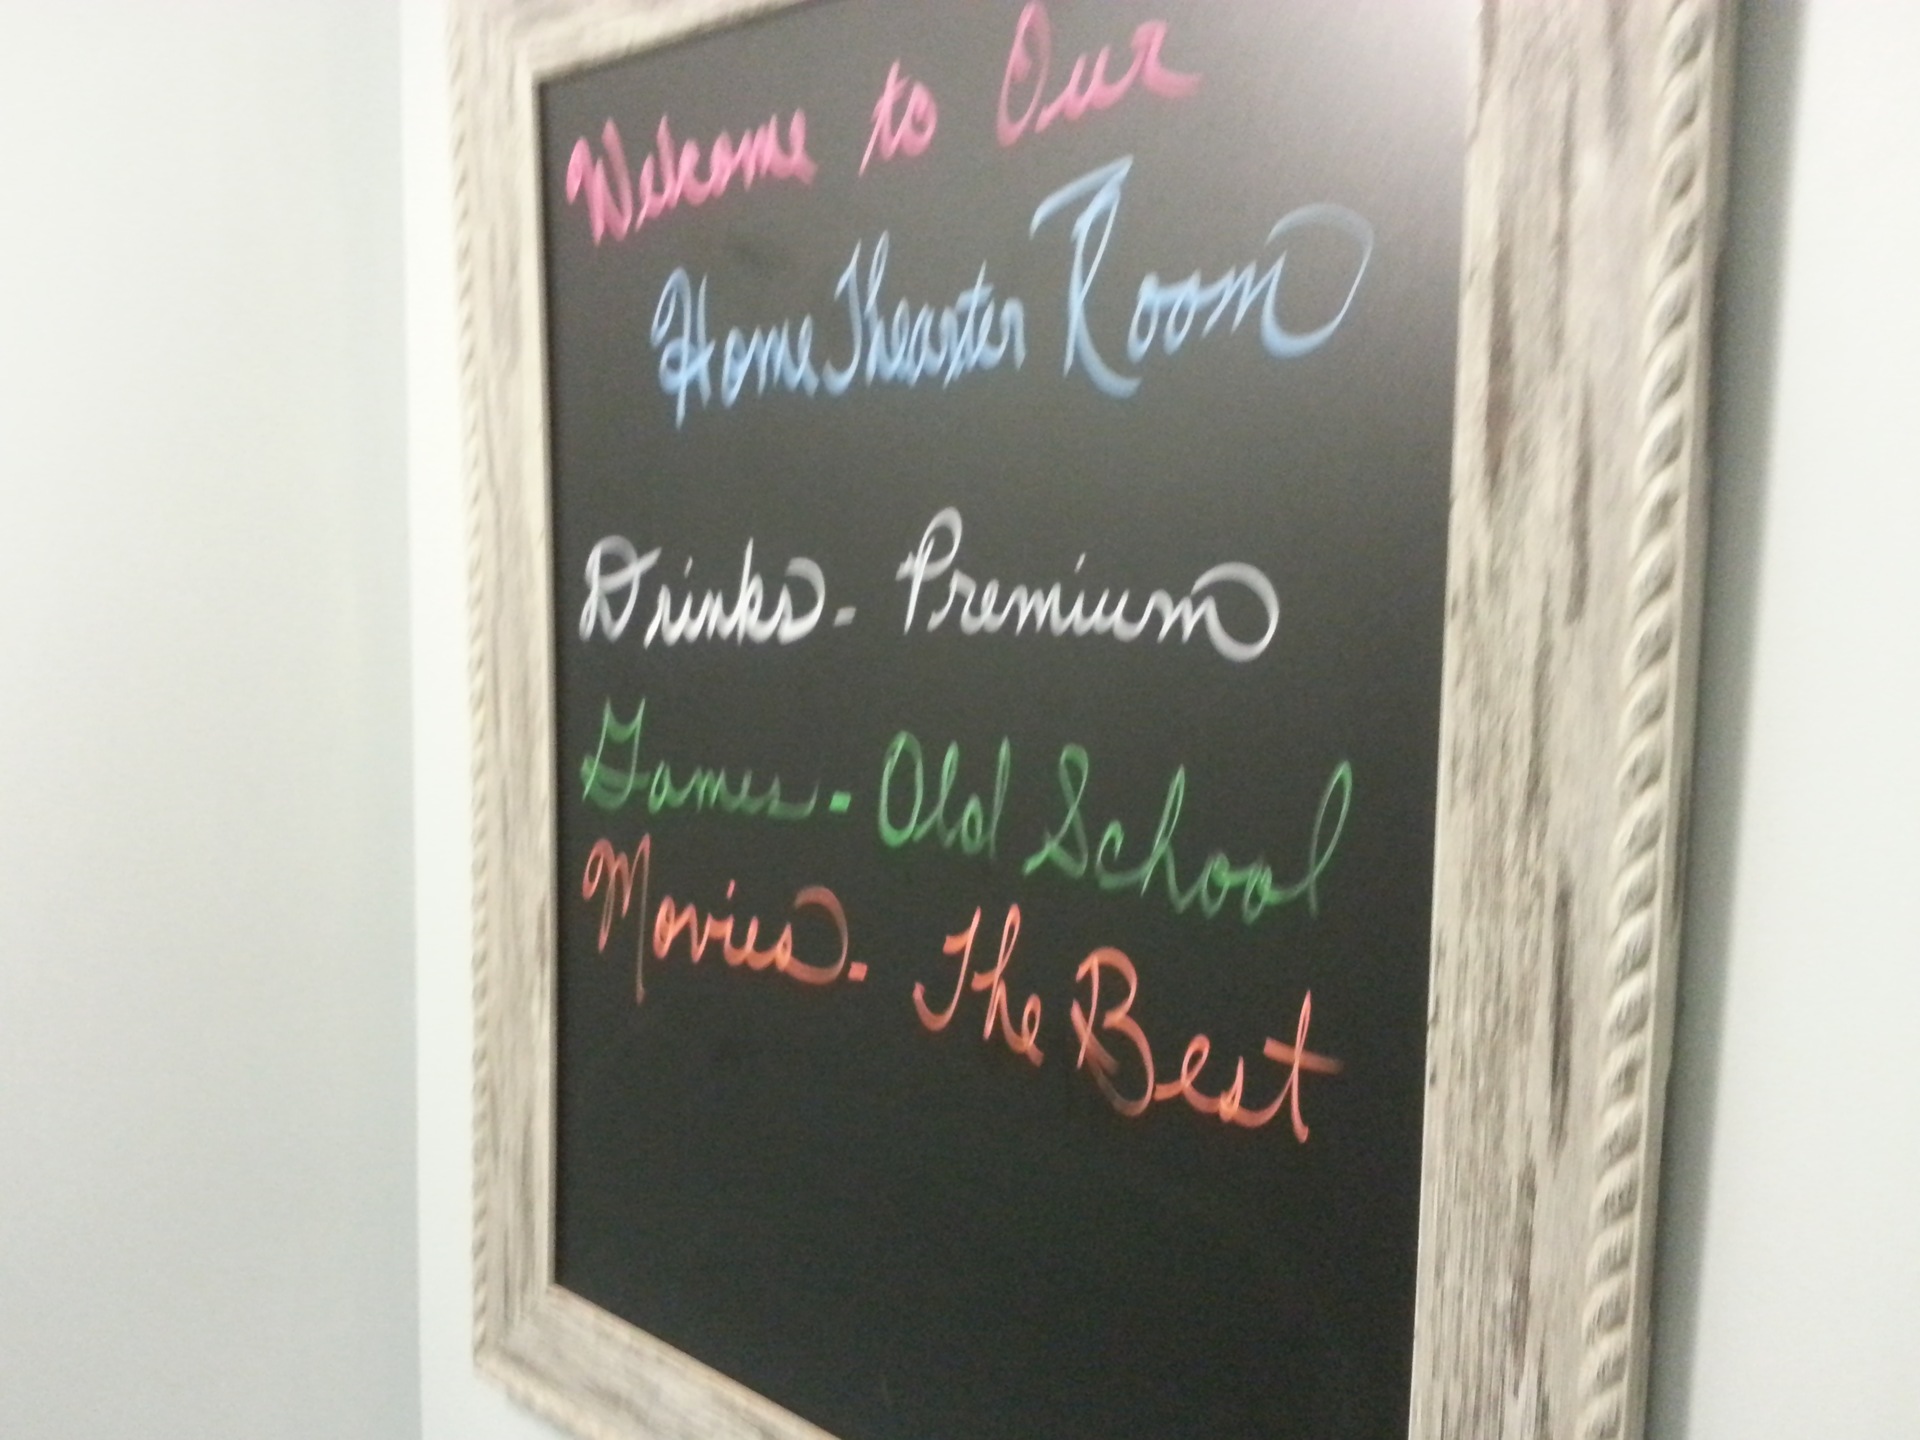 Welcome to Our
Home Thearter Room
Drinks - Premium
Games - Old School
Movies - The Best